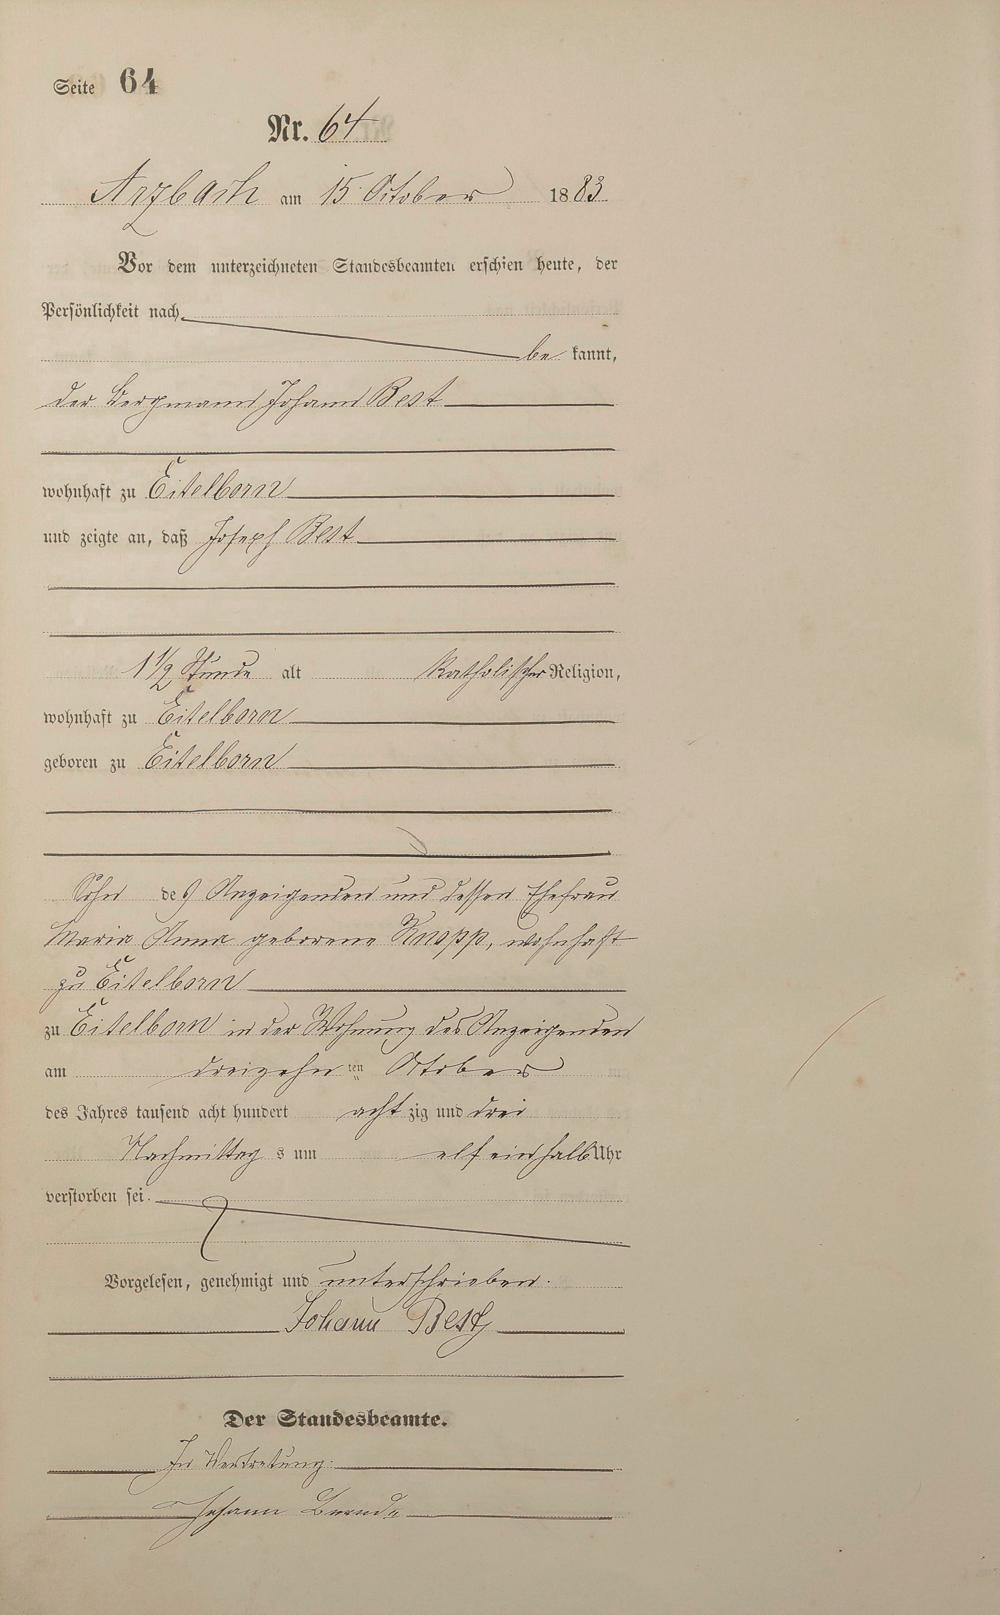 Seite 64
Nr. 64
Arzbach am 15. October 1883
Vor dem unterzeichneten Standesbeamten erschien heute, der
Persönlichkeit nach
be kannt,
der Bergmann Johann Best
wohnhaft zu Eitelborn
und zeigte an, daß Joseph Best
1 1/2 Stunde alt katholischer Religion,
wohnhaft zu Eitelborn
geboren zu Eitelborn
Sohn des Anzeigenden und dessen Ehefrau
Maria Anna geborene Knopp, wohnhaft
zu Eitelborn
zu Eitelborn in der Wohnung des Anzeigenden
am dreizehn ten October
des Jahres tausend acht hundert acht zig und drei
Nachmittag s um elf einhalb Uhr
verstorben sei.
Vorgelesen, genehmigt und unterschrieben.
Johann Best
Der Standesbeamte.
In Vertretung:
Johann